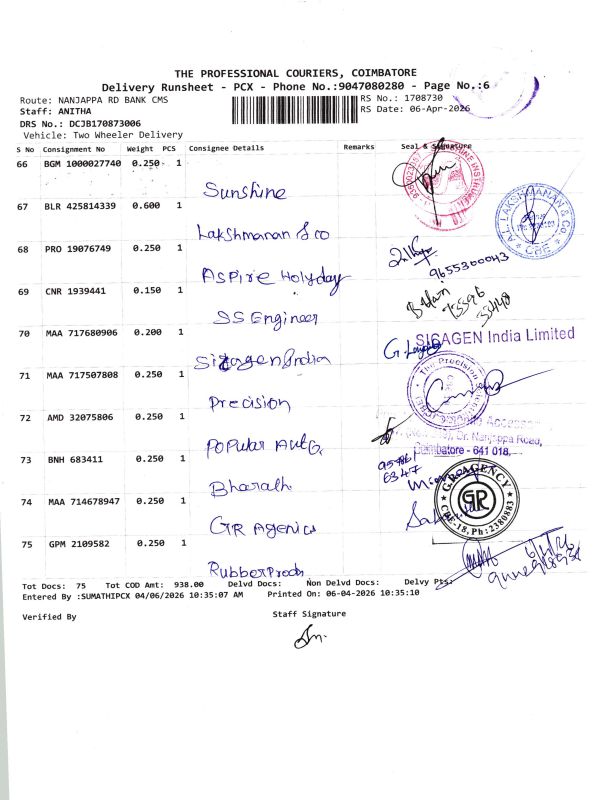 THE PROFESSIONAL COURIERS, COIMBATORE
Delivery Runsheet - PCX - Phone No.:9047080280 - Page No.:6
Route: NANJAPPA RD BANK CMS
RS No.: 1708730
Staff: ANITHA
RS Date: 06-Apr-2026
DRS No.: DCJB170873006
Vehicle: Two Wheeler Delivery
S No Consignment No Weight PCS Consignee Details Remarks Seal & Signature
66 BGM 1000027740 0.250 1
Sunshine
67 BLR 425814339 0.600 1
Lakshmanan & co
A.L. LAKSHMANAN & CO
CBE
68 PRO 19076749 0.250 1
Aspire Holyday
9655300043
69 CNR 1939441 0.150 1
SS Engineer
70 MAA 717680906 0.200 1
SICAGEN India Limited
Sicagen India
71 MAA 717507808 0.250 1
The Precision
Precision
72 AMD 32075806 0.250 1
Dr. Nanjappa Road,
Popular Aut
Coimbatore - 641 018.
73 BNH 683411 0.250 1
6347
Bharath
74 MAA 714678947 0.250 1
G.R.AGENCY
GR
CBE-18, Ph:2380883
GR Agencis
75 GPM 2109582 0.250 1
Rubber Prods
Tot Docs: 75 Tot COD Amt: 938.00 Delvd Docs: Non Delvd Docs: Delvy Pts:
Entered By :SUMATHIPCX 04/06/2026 10:35:07 AM Printed On: 06-04-2026 10:35:10
Verified By
Staff Signature